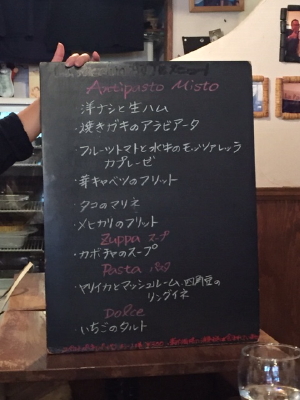 Antipasto Misto
・洋ナシと生ハム
・焼きガキのアラビアータ
・フルーツトマトと水牛のモッツァレッラ
カプレーゼ
・芽キャベツのフリット
・タコのマリネ
・メヒカリのフリット
Zuppa スープ
・カボチャのスープ
Pasta パスタ
・ヤリイカとマッシュルーム、四角豆の
リングイネ
Dolce
・いちごのタルト